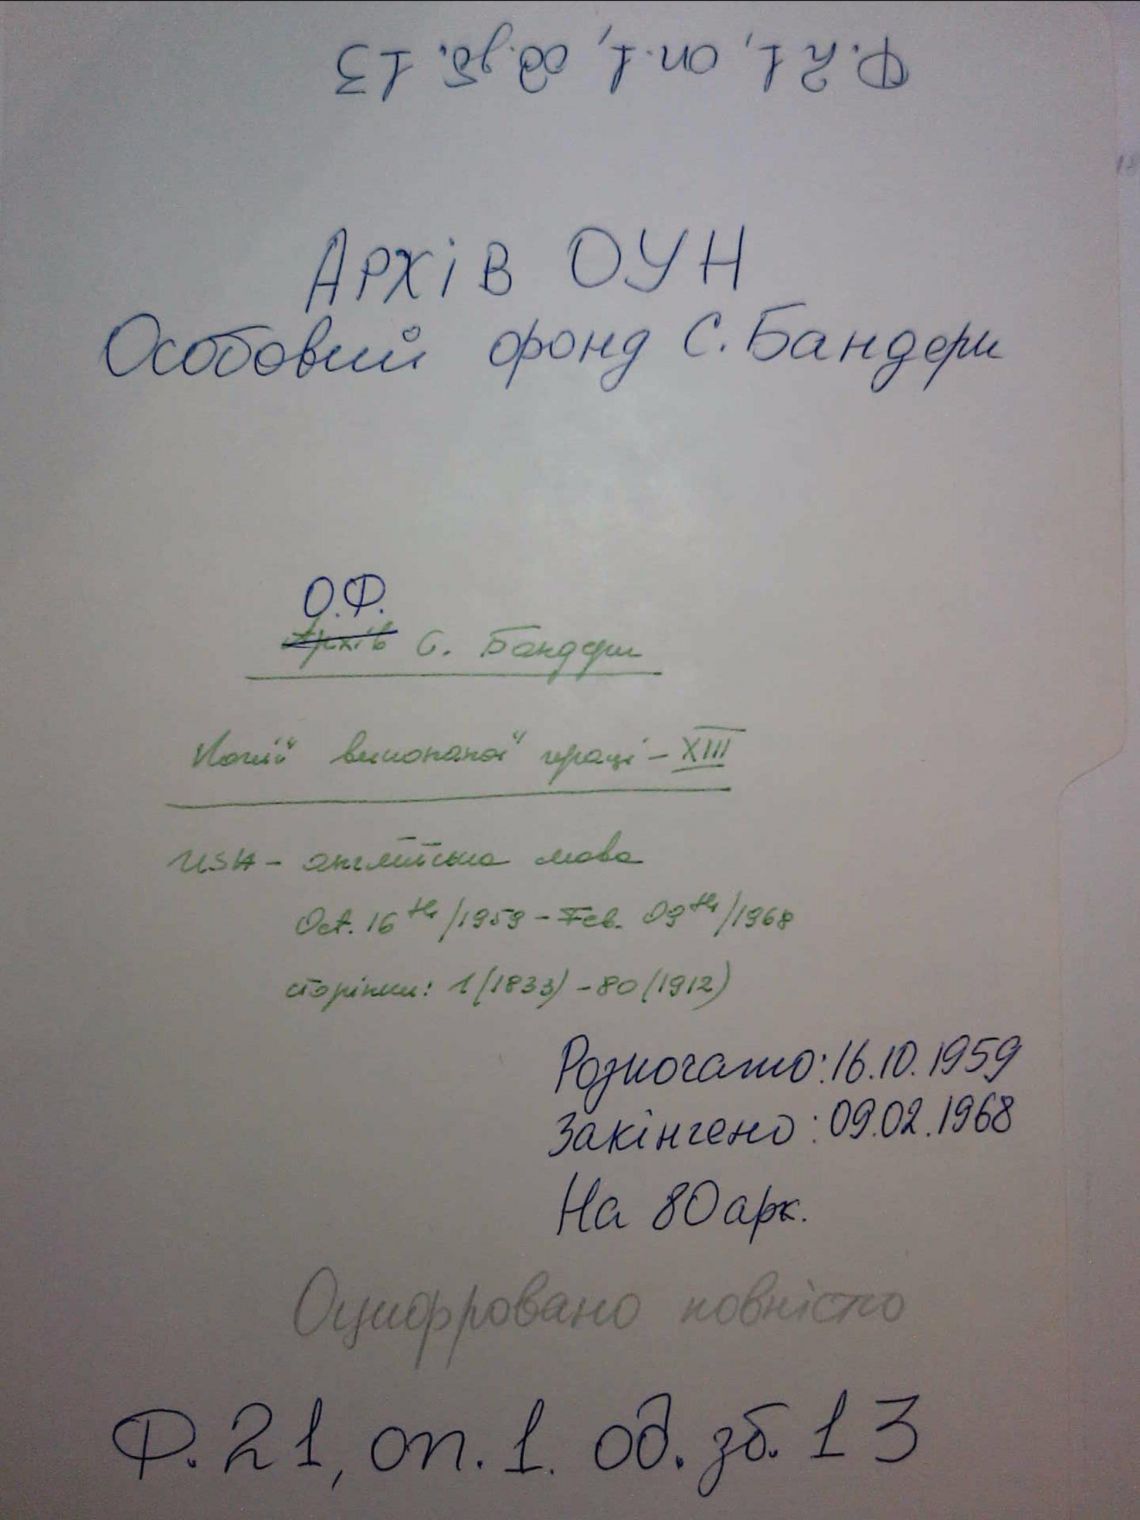 Ф.21, оп.1, од.зб. 13
Архів ОУН
Особовий фонд С. Бандери
О.Ф.
Архів С. Бандери
Копії виконаної праці - XIII
USA - англійська мова
Oct. 16th/1959 - Feb. 09th/1968
сторінки: 1(1833) - 80(1912)
Розпочато: 16.10.1959
Закінчено: 09.02.1968
На 80 арк.
Оцифровано повністю
Ф.21, оп.1. од.зб. 13